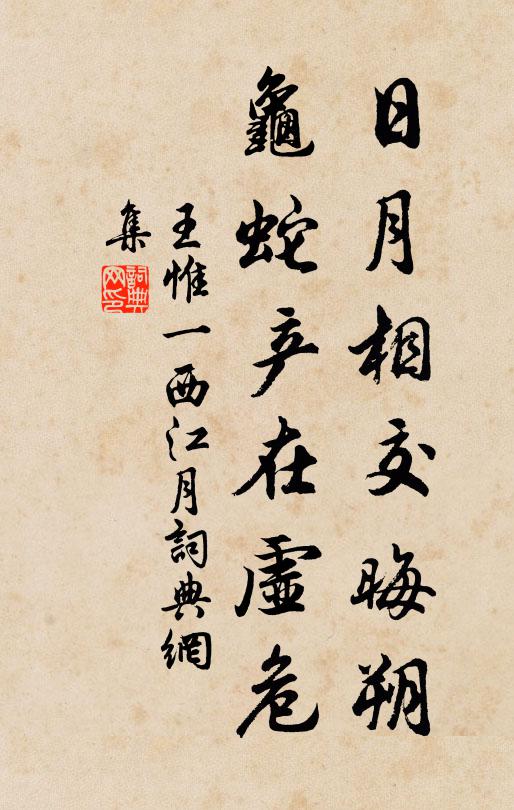 日月相交晦朔
龜蛇产在虛危
王惟一西江月詞典網
集
詞典
网印